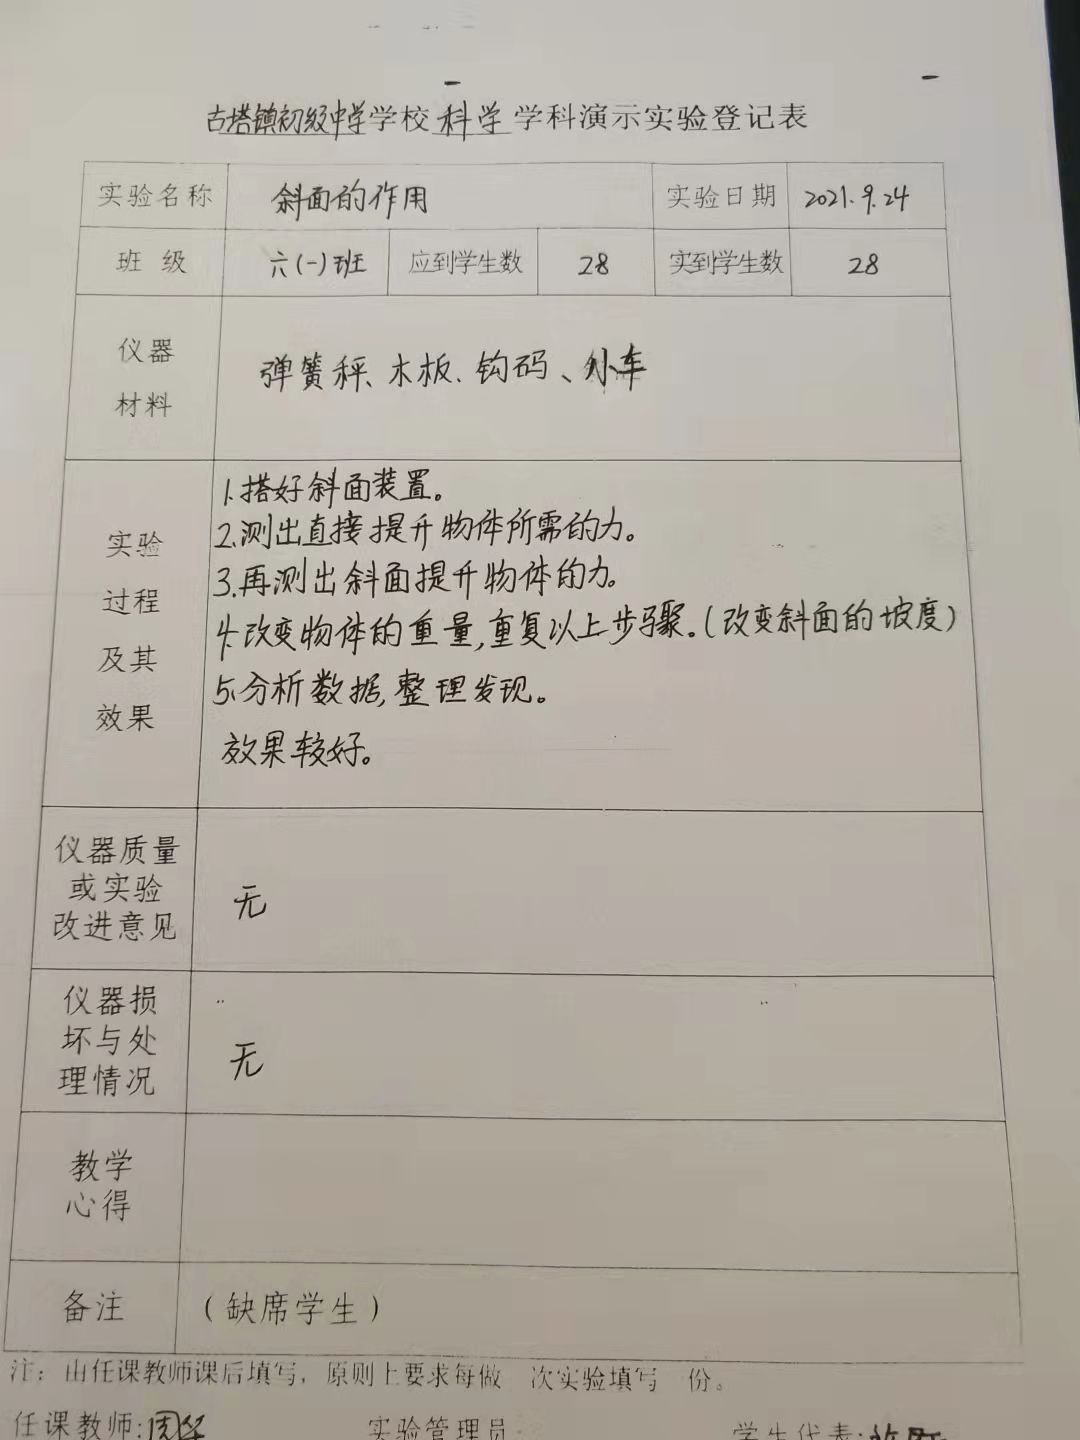 古塔镇初级中学学校科学学科演示实验登记表
实验名称 斜面的作用 实验日期 2021.9.24
班 级 六(一)班 应到学生数 28 实到学生数 28
仪器
材料
弹簧秤、木板、钩码、小车
实验
过程
及其
效果
1.搭好斜面装置。
2.测出直接提升物体所需的力。
3.再测出斜面提升物体的力。
4.改变物体的重量,重复以上步骤。(改变斜面的坡度)
5.分析数据,整理发现。
效果较好。
仪器质量
或实验
改进意见
无
仪器损
坏与处
理情况
无
教学
心得
备注 (缺席学生)
注：由任课教师课后填写，原则上要求每做 次实验填写 份。
任课教师: 实验管理员: 学生代表: